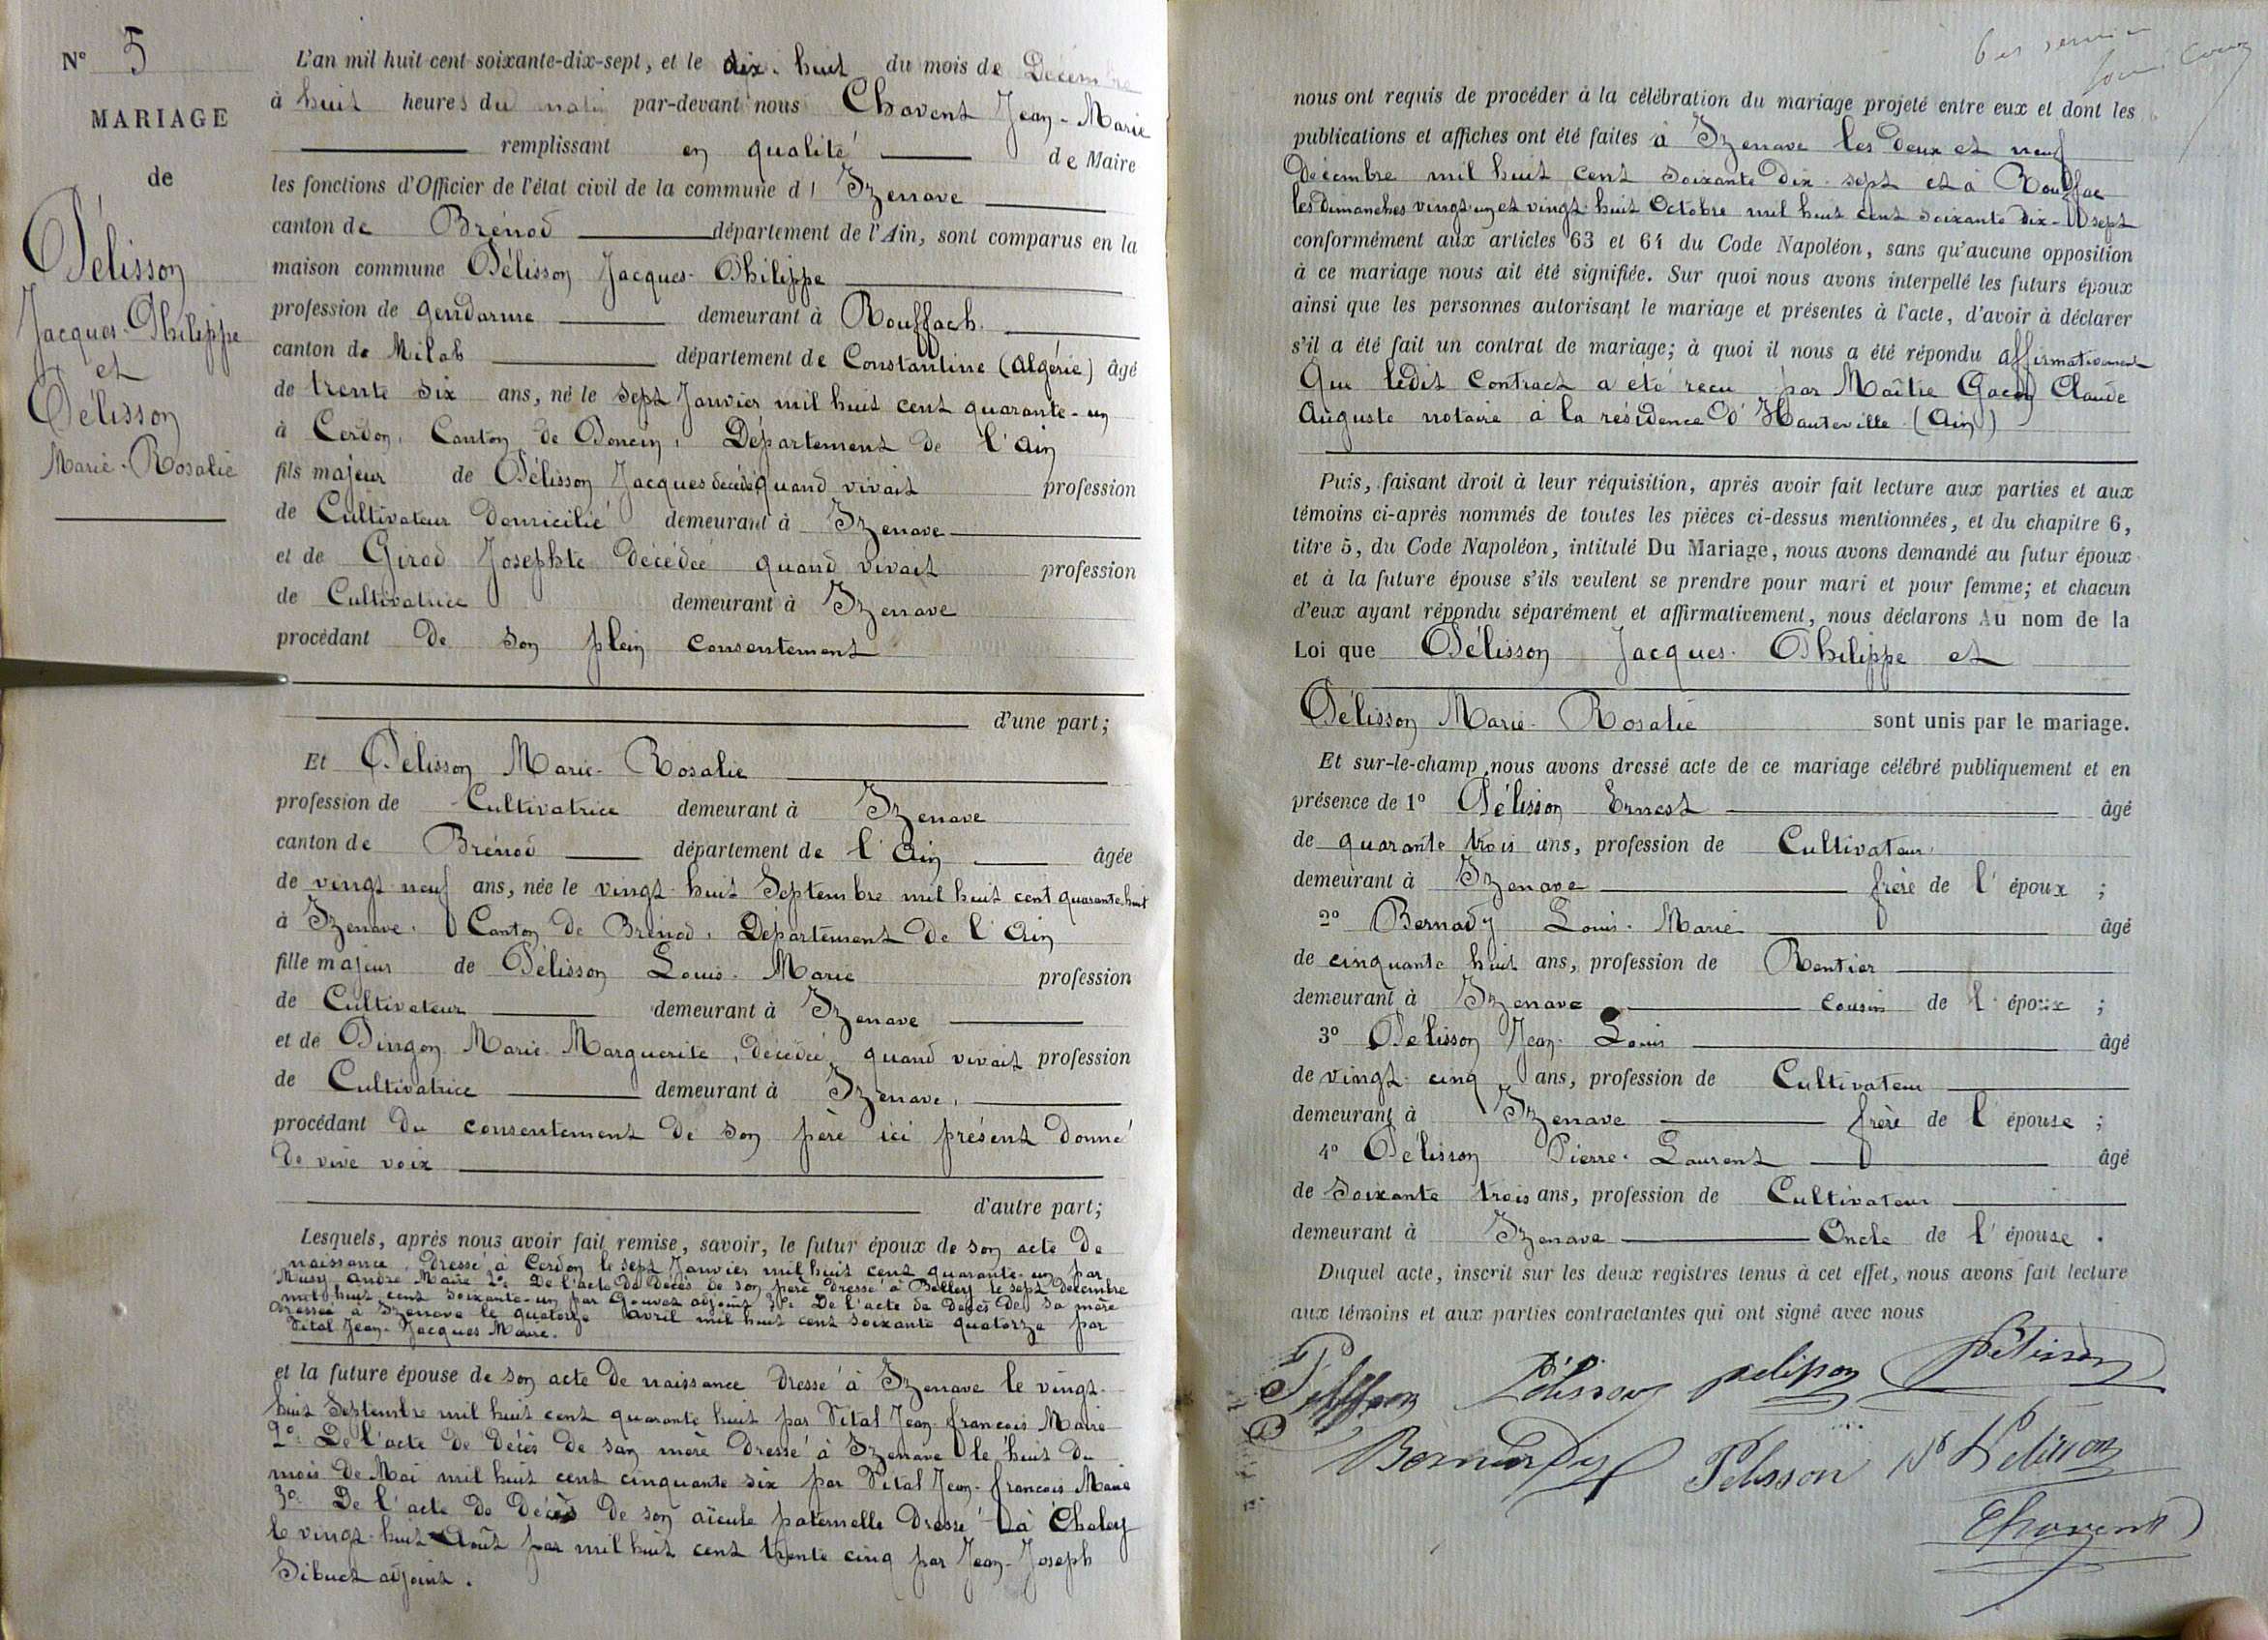 N° 5
MARIAGE
de
Pélisson
Jacques-Philippe
et
Pélisson
Marie-Rosalie
L'an mil huit cent soixante-dix-sept, et le dix-huit du mois de Décembre
à huit heures du matin par-devant nous Chavent Jean-Marie
remplissant en qualité de Maire
les fonctions d'Officier de l'état civil de la commune d' Izenave
canton de Brénod département de l'Ain, sont comparus en la
maison commune Pélisson Jacques-Philippe
profession de gendarme demeurant à Rouffach.
canton de Milah département de Constantine (Algérie) âgé
de trente six ans, né le sept Janvier mil huit cent quarante-un
à Cerdon, Canton de Poncin, Département de l'Ain
fils majeur de Pélisson Jacques décédé quand vivait profession
de Cultivateur domicilié demeurant à Izenave
et de Girod Josephte décédée quand vivait profession
de Cultivatrice demeurant à Izenave
procédant de son plein consentement
d'une part;
Et Pélisson Marie-Rosalie
profession de Cultivatrice demeurant à Izenave
canton de Brénod département de l'Ain âgée
de vingt-neuf ans, née le vingt-huit Septembre mil huit cent quarante-huit
à Izenave, Canton de Brénod, Département de l'Ain
fille majeur de Pélisson Louis-Marie profession
de Cultivateur demeurant à Izenave
et de Pingon Marie-Marguerite, décédée, quand vivait profession
de Cultivatrice demeurant à Izenave,
procédant du consentement de son père ici présent donné
de vive voix
d'autre part;
Lesquels, après nous avoir fait remise, savoir, le futur époux de son acte de
naissance, dressé à Cerdon le sept Janvier mil huit cent quarante-un par
Musy André Maire 2°: De l'acte de décès de son père dressé à Belley le sept décembre
mil huit cent soixante-un par adjoint 3°: De l'acte de décès de sa mère
dressée à Izenave le quatorze avril mil huit cent soixante quatorze par
Vital Jean-Jacques Maire.
et la future épouse de son acte de naissance dressé à Izenave le vingt-
huit Septembre mil huit cent quarante huit par Vital Jean-francois Maire
2°: De l'acte de décès de son mère dressé à Izenave le huit du
mois de Mai mil huit cent cinquante six par Vital Jean-francois Maire
3°: De l'acte de décès de son aïeule paternelle dressé à Chaley
le vingt-huit Août par mil huit cent trente cinq par Jean-Joseph
Sibuet adjoint.
nous ont requis de procéder à la célébration du mariage projeté entre eux et dont les
publications et affiches ont été faites à Izenave les deux et neuf
Décembre mil huit cent soixante dix-sept et à Rouffac
les dimanches vingt-un et vingt-huit Octobre mil huit cent soixante dix-sept
conformément aux articles 63 et 64 du Code Napoléon, sans qu'aucune opposition
à ce mariage nous ait été signifiée. Sur quoi nous avons interpellé les futurs époux
ainsi que les personnes autorisant le mariage et présentes à l'acte, d'avoir à déclarer
s'il a été fait un contrat de mariage; à quoi il nous a été répondu affirmativement
Que ledit Contract a été recu par Maître Claude
Auguste notaire à la résidence d'Hauteville (Ain)
Puis, faisant droit à leur réquisition, après avoir fait lecture aux parties et aux
témoins ci-après nommés de toutes les pièces ci-dessus mentionnées, et du chapitre 6,
titre 5, du Code Napoléon, intitulé Du Mariage, nous avons demandé au futur époux
et à la future épouse s'ils veulent se prendre pour mari et pour femme; et chacun
d'eux ayant répondu séparément et affirmativement, nous déclarons Au nom de la
Loi que Pélisson Jacques-Philippe et
Pélisson Marie-Rosalie sont unis par le mariage.
Et sur-le-champ nous avons dressé acte de ce mariage célébré publiquement et en
présence de 1° Pélisson Ernest âgé
de quarante trois ans, profession de Cultivateur
demeurant à Izenave frère de l'époux ;
2° Bernardy Louis-Marie âgé
de cinquante huit ans, profession de Rentier
demeurant à Izenave cousin de l'époux ;
3° Pélisson Jean-Louis âgé
de vingt-cinq ans, profession de Cultivateur
demeurant à Izenave frère de l'épouse ;
4° Pélisson Pierre-Laurent âgé
de soixante trois ans, profession de Cultivateur
demeurant à Izenave Oncle de l'épouse.
Duquel acte, inscrit sur les deux registres tenus à cet effet, nous avons fait lecture
aux témoins et aux parties contractantes qui ont signé avec nous
Pélisson pelisson Pelisson
Bernardy Pelisson Pelisson
Chavent